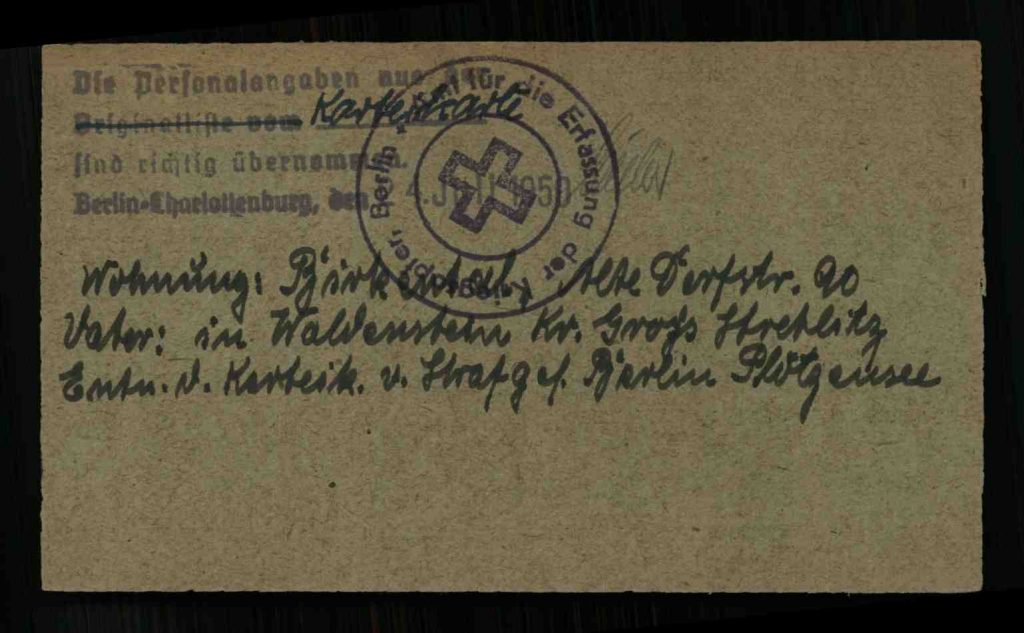 Die Personalangaben aus der
Originalliste vom Karteikarte
sind richtig übernommen.
Berlin-Charlottenburg, den 4. JULI 1950
Amt für die Erfassung der Kriegsopfer, Berlin
Wohnung: Birkental, Alte Dorfstr. 90
Vater: in Waldenstein Kr. Groß Strehlitz
Entn. d. Karteik. v. Strafgef. Berlin Plötzensee